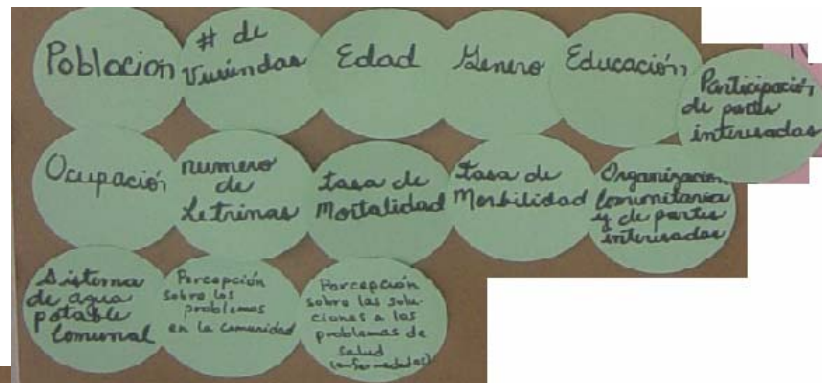 Población
# de
Viviendas
Edad
Genero
Educación
Participación
de partes
interesadas
Ocupación
numero
de
Letrinas
tasa de
Mortalidad
tasa de
Morbilidad
Organización
Comunitaria
y de partes
interesadas
Sistema
de agua
potable
Comunal
Percepción
sobre los
problemas
en la comunidad
Percepción
sobre las solu-
ciones a los
problemas de
salud
(enfermedades)